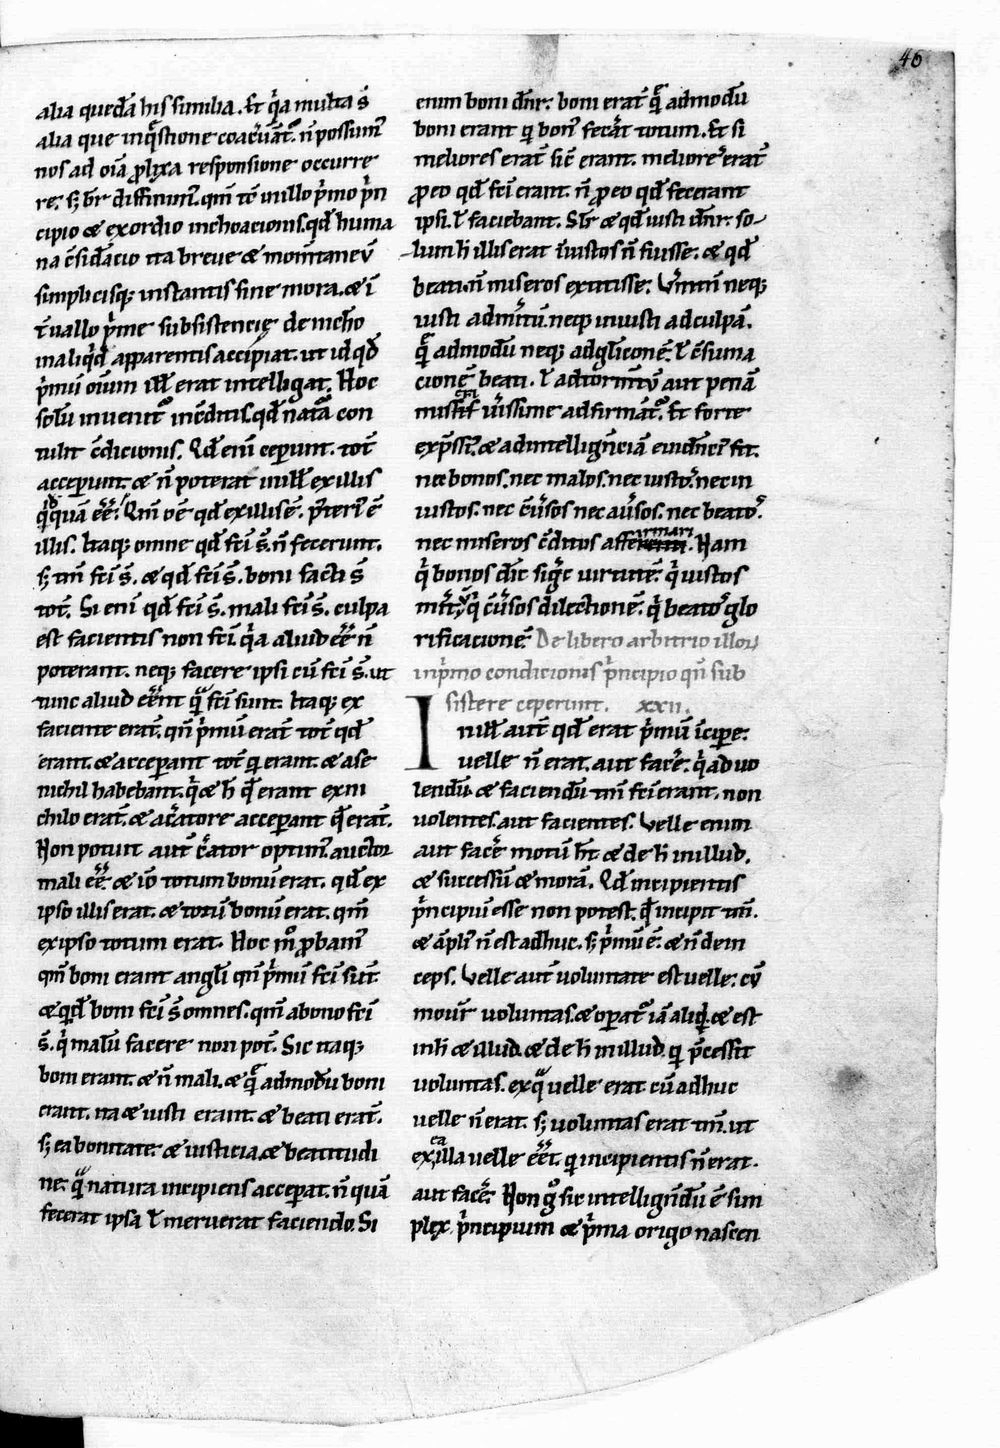 46
alia quedā his similia. Et q̇a multa s̄
alia que inq̄stione coacēuāt᷑. n̄ possum᷑
nos ad oīa ꝓlixa responsione occurre
re: sꝫ br̄ diffinim᷑. qm̄ in illo ṗmo ṗn
cipio ⁊ exordio inchoacionis. qd̄ huma
na c̄sid̄acio ita breue ⁊ mom̄taneū
simplicisqꝫ instantis sine mora. ⁊ ī
t̄uallo ṗme subsistencię de nich̄o
in aliq̇d apparentis accipiat. ut id qd̄
ṗmū oīum ill̄ erat intelligat. Hoc
solū inuenit᷑ in c̄ditis. qd̄ nat̄a con
tulit c̄dicionis. Qd̄ enī ceperunt. tot̄
acceperunt. ⁊ n̄ poterat in ill̄ ex illis
q̇dquā eē. Qm̄ om̄e qd̄ ex illis ē. p̄teri᷑ ē
illis. Itaqꝫ omne qd̄ fc̄i s̄. n̄ fecerunt.
sꝫ tm̄ fc̄i s̄. ⁊ qd̄ fc̄i s̄. boni facti s̄
tot̄. Si enī qd̄ fc̄i s̄. mali fc̄i s̄. culpa
est facientis non fc̄i. q̇a aliud eē n̄
poterant. neqꝫ facere ipsi cū fc̄i s̄. ut
tunc aliud eēnt q̄ fc̄i sunt. Itaqꝫ ex
faciente erāt. qn̄ ṗmū erāt tot̄ qd̄
erant. ⁊ acceperant tot̄ q̇ erant. ⁊ a se
nichil habebant. q̇a ⁊ h̄ q̄ erant ex ni
chilo erāt. ⁊ a c̄atore acceperant q̄ erāt.
Non potuit aut̄ c̄ator optim᷑ auctor
mali eē. ⁊ iō totum bonū erat. qd̄ ex
ipso illis erat. ⁊ totū bonū erat. qm̄
ex ipso totum erat. Hoc m̊ ꝓbam᷑
qm̄ boni erant angl̄i qn̄ ṗmū fc̄i sūt.
⁊ qd̄ boni fc̄i s̄ omnes. qm̄ a bono fc̄i
s̄. q̇ malū facere non pot̄. Sic itaqꝫ
boni erant. ⁊ n̄ mali. ⁊ q̄ admodū boni
erant. ita ⁊ iusti erant. ⁊ beati erāt.
sꝫ ea bonitate. ⁊ iusticia. ⁊ beatitudi
ne. q̄ natura incipiens acceperat. n̄ quā
fecerat ipsa ł meruerat faciendo. Si
enim boni dn̄r. boni erāt q̄ admodū
boni erant q̇ bon᷑ fecāt totum. Et si
meliores erāt sic̄ erant. meliores erāt
ꝓ eo qd̄ fc̄i erant. n̄ ꝓ eo qd̄ fecerant
ipsi. ł faciebant. Sil̄r ⁊ qd̄ iusti dn̄r. so
lum h̄ illis erat iniustos n̄ fuisse. ⁊ qd̄
beati. n̄ miseros extitisse. Vm̄tn̄ neqꝫ
iusti ad m̄itū. neqꝫ iniusti ad culpā.
q̄ admodū neqꝫ ad gl̄iconē. ł c̄suma
cionē beati. ł ad torm̄tū aut penā
miseri uīssime adfirmāt᷑. Et forte
exp̄ssi᷑. ⁊ ad intellign̄ciā euidn̄ci᷑ fit.
nec bonos. nec malos. nec iustos. nec in
iustos. nec c̄uersos nec auersos. nec beatos.
nec miseros c̄ditos affirmari. Nam
q̇ bonos dīc sig̊c uirtutē. q̇ iustos
mīt. q̇ c̄uersos dilectionē. q̇ beatos glo
rificacionē. De libero arbitrio illoꝝ
in ṗmo condicionis ṗncipio qn̄ sub
sistere ceperunt. xxii.
In ill̄ aut̄ qd̄ erat ṗmū īcipere.
uelle n̄ erat. aut facē. q̇a ad uo
lendū. ⁊ faciendū tm̄ fc̄i erant. non
uolentes. aut facientes. Velle enim
aut facē motū hn̄t ⁊ de h̄ in illud.
⁊ successū ⁊ morā. Qd̄ incipientis
ṗncipiū esse non potest. q̄ incipit tm̄.
⁊ ampli᷑ n̄ est adhuc. sꝫ ṗmū ē. ⁊ n̄ dein
ceps. Velle aut̄ uoluntate est uelle. cū
mouet᷑ uoluntas. ⁊ operat᷑ iā aliq̇d. ⁊ est
in h̄ ⁊ illud. ⁊ de h̄ in illud. q̇ p̄cessit
uoluntas. ex q̄ uelle erat cū adhuc
uelle n̄ erat. sꝫ uoluntas erat tm̄. ut
ex ea illa uelle eēt. q̇ incipientis n̄ erat.
aut facē. Non g̊ sic intellign̄dū ē sim
plex ṗncipium ⁊ ṗma origo nascen